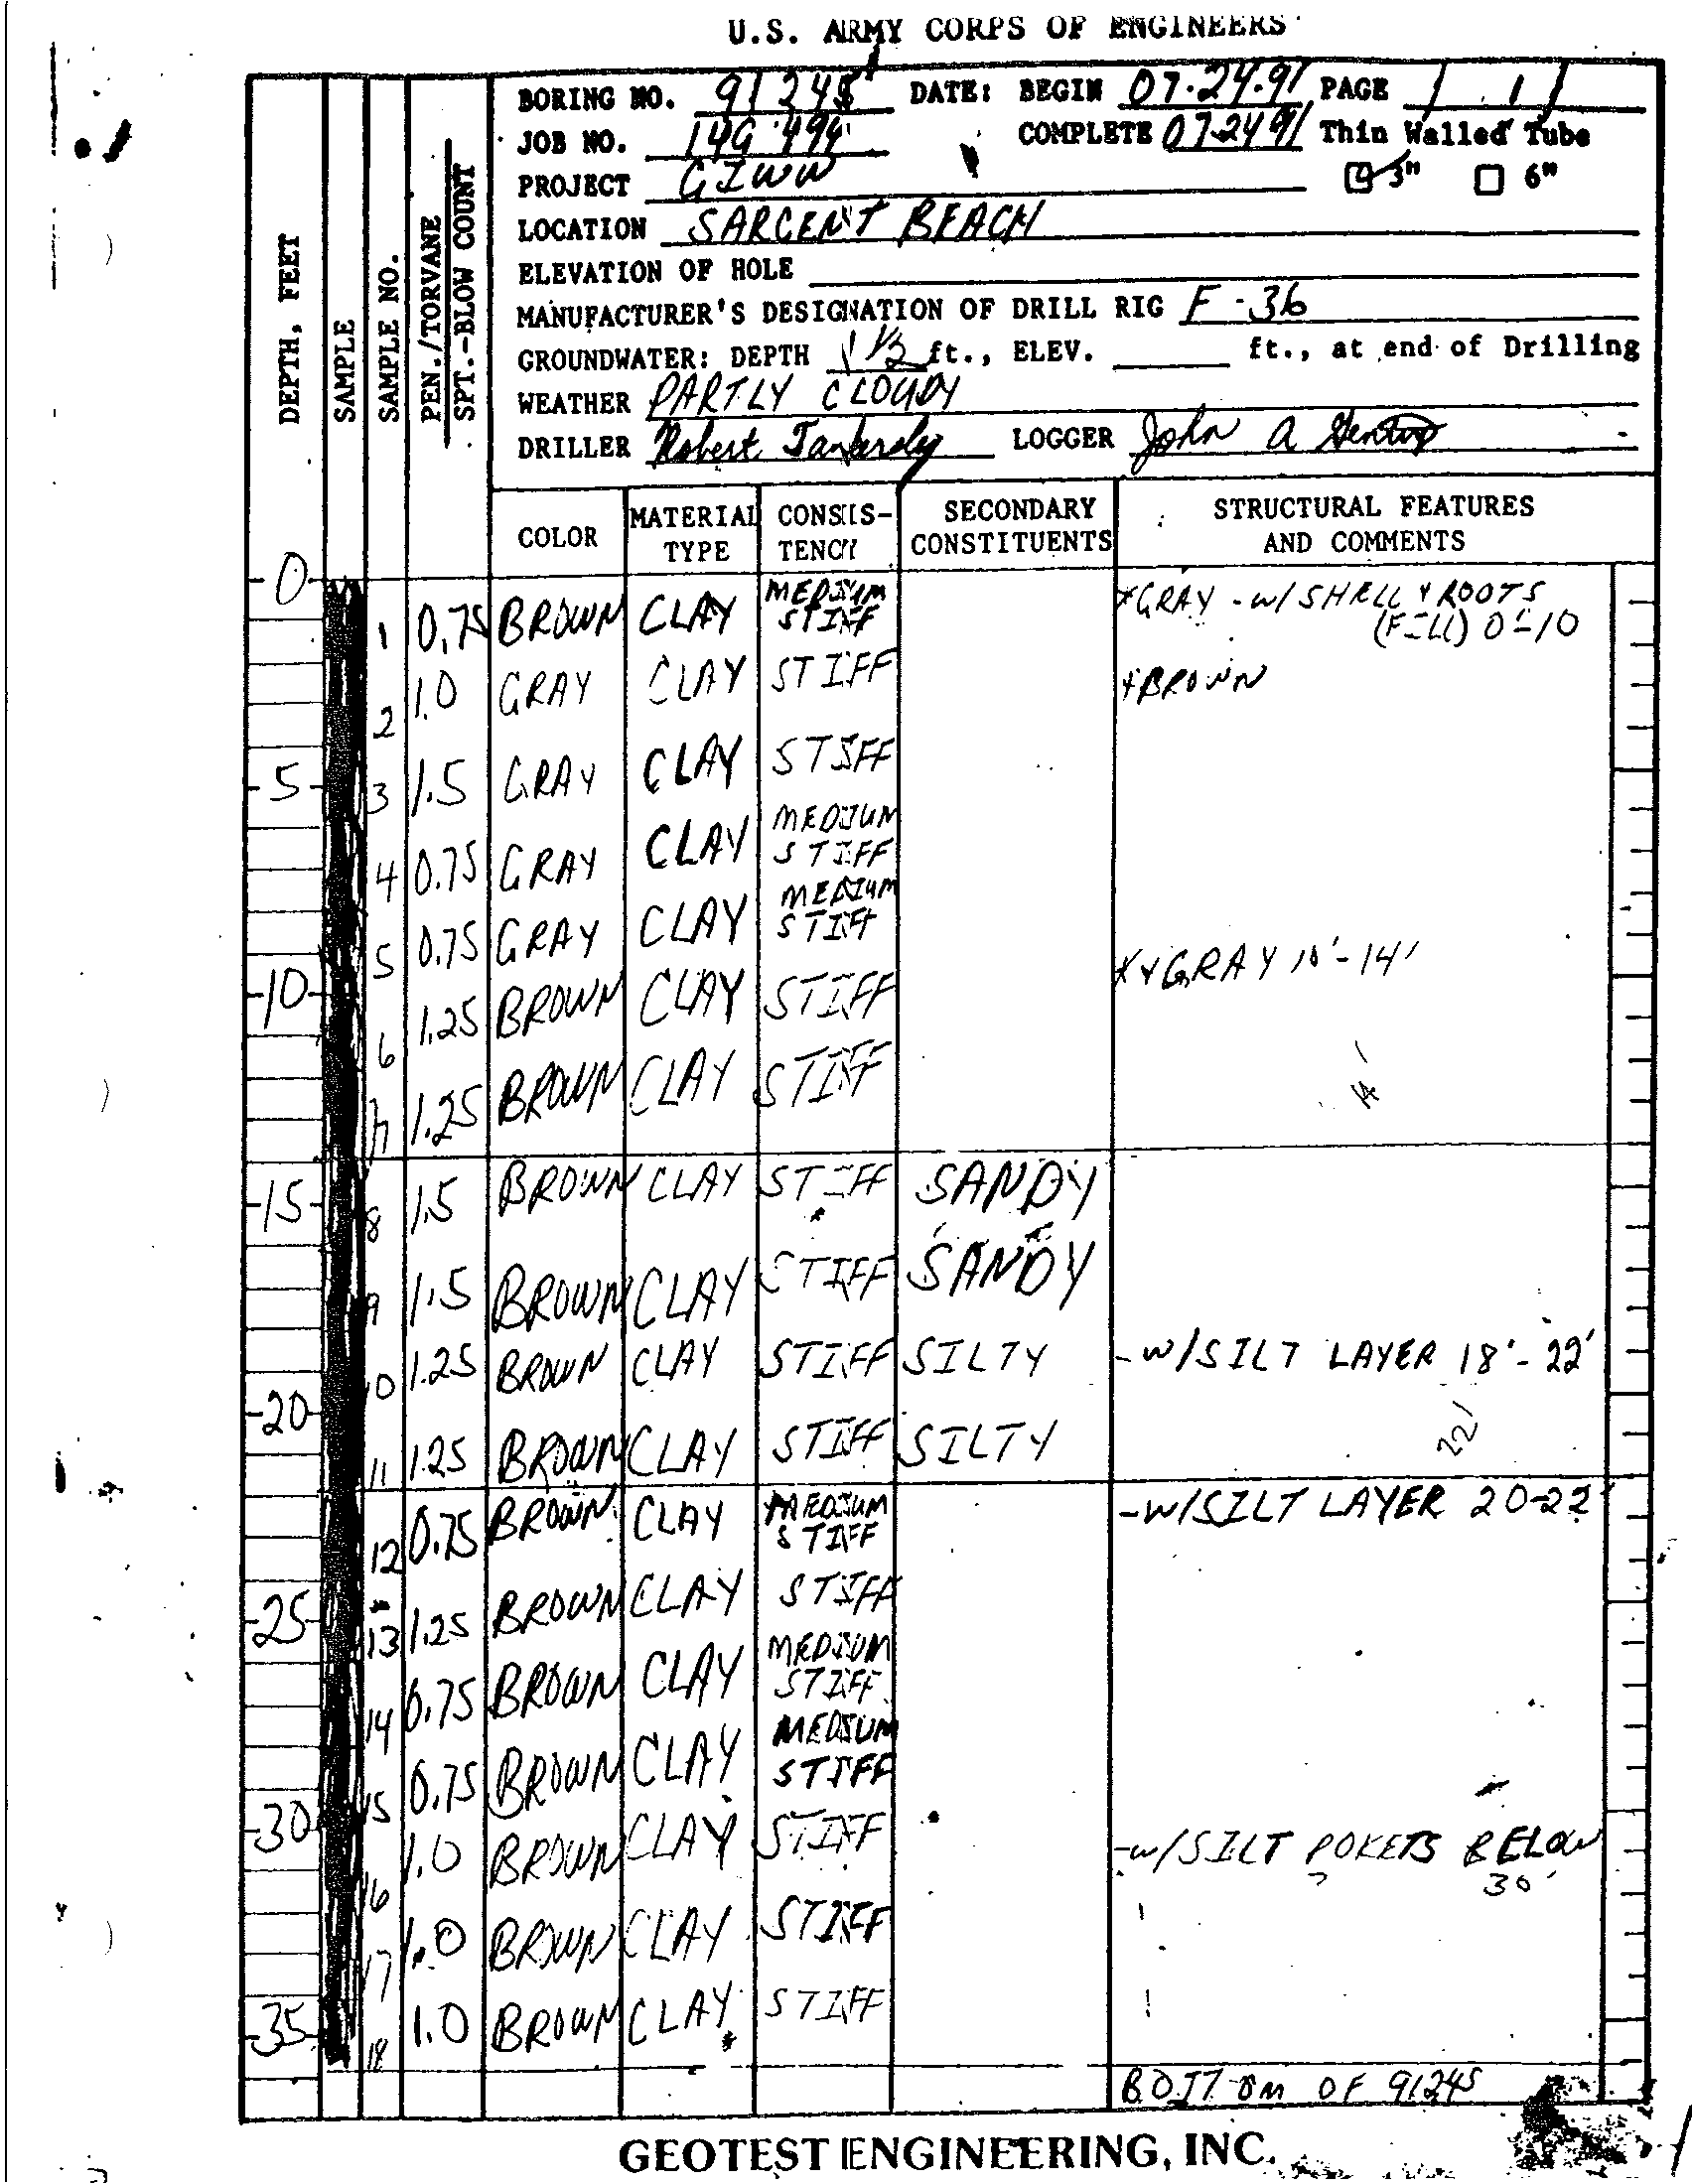 U.S. ARMY CORPS OF ENGINEERS
BORING NO. 91245 DATE: BEGIN 07-24-91 PAGE 1 / 1
JOB NO. 149 494 COMPLETE 07-24 91 Thin Walled Tube
PROJECT GIWW 3" 6"
LOCATION SARGENT BEACH
ELEVATION OF HOLE
MANUFACTURER'S DESIGNATION OF DRILL RIG F-36
GROUNDWATER: DEPTH ft., ELEV. ft., at end of Drilling
WEATHER PARTLY CLOUDY
DRILLER Robert LOGGER John A
DEPTH, FEET
SAMPLE
SAMPLE NO.
PEN./TORVANE
SPT.-BLOW COUNT
COLOR MATERIAL TYPE CONSIS-TENCY SECONDARY CONSTITUENTS STRUCTURAL FEATURES AND COMMENTS
0
1 0.75 BROWN CLAY MEDIUM STIFF +GRAY - W/SHELL + ROOTS
(FILL) 0'-10
2 1.0 GRAY CLAY STIFF +BROWN
5 3 1.5 GRAY CLAY STIFF
4 0.75 GRAY CLAY MEDIUM STIFF
5 0.75 GRAY CLAY MEDIUM STIFF
10 6 1.25 BROWN CLAY STIFF +GRAY 10'-14'
7 1.25 BROWN CLAY STIFF 14'
15 8 1.5 BROWN CLAY STIFF SANDY
9 1.5 BROWN CLAY STIFF SANDY
10 1.25 BROWN CLAY STIFF SILTY -W/SILT LAYER 18'-22'
20 11 1.25 BROWN CLAY STIFF SILTY 22'
12 0.75 BROWN CLAY MEDIUM STIFF -W/SILT LAYER 20-22'
25 13 1.25 BROWN CLAY STIFF
14 0.75 BROWN CLAY MEDIUM STIFF
15 0.75 BROWN CLAY MEDIUM STIFF
30 16 1.0 BROWN CLAY STIFF -W/SILT POKETS BELOW
30'
17 1.0 BROWN CLAY STIFF
35 18 1.0 BROWN CLAY STIFF
BOTTOM OF 91245
GEOTEST ENGINEERING, INC.